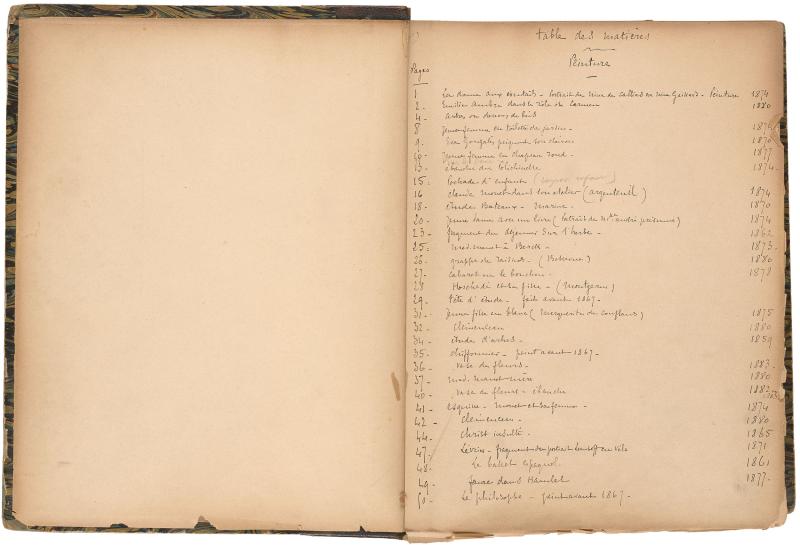 Table des matières
Peinture
Pages
1 La dame aux éventails - portrait de Mme de Callias ou Nina Gaillard - Peinture 1874
2 - Emilie Ambre dans le rôle de Carmen 1880
4 - arbres ou dessous de bois
8 Jeune femme en toilette de jardin - 1876
9 . Eva Gonzalès peignant son 1870
10 - Jeune femme en chapeau rond - 1877
13 - ébauche du Polichinelle 1874 -
15 : toilettes d'enfants
16 Claude Monet dans son atelier (argenteuil) 1874
18 - études Bateaux - marine - 1870
20 - Jeune dame avec un livre (Portrait de Mme andré) 1874
23 - fragment du déjeuner sur l'herbe - 1862
25 : mad. manet à Berck - 1873 -
26 - grappe de raisins - 1880
27 - cabaret ou le bouchon - 1878
28 Hoschedé et sa fille - (montgeron)
29 - Tête d'étude - fait avant 1867 -
31 - jeune fille en blanc (marguerite de conflans) 1875
32 - Clémenceau 1880
34 - étude d'arbres - 1859
35 - chiffonnier - peint avant 1867 -
36 - vase de fleurs - 1883 -
37 - mad. manet mère 1880
40 - vase de fleurs - ébauche 1882
41 - esquisse - monet et sa femme - 1874
42 - Clémenceau - 1880
44 - christ insulté - 1865
47 - fragment du portrait en vélo 1871
48 - Le ballet espagnol - 1861
49 - faure dans Hamlet 1877 -
50 - Le philosophe - peint avant 1867 -